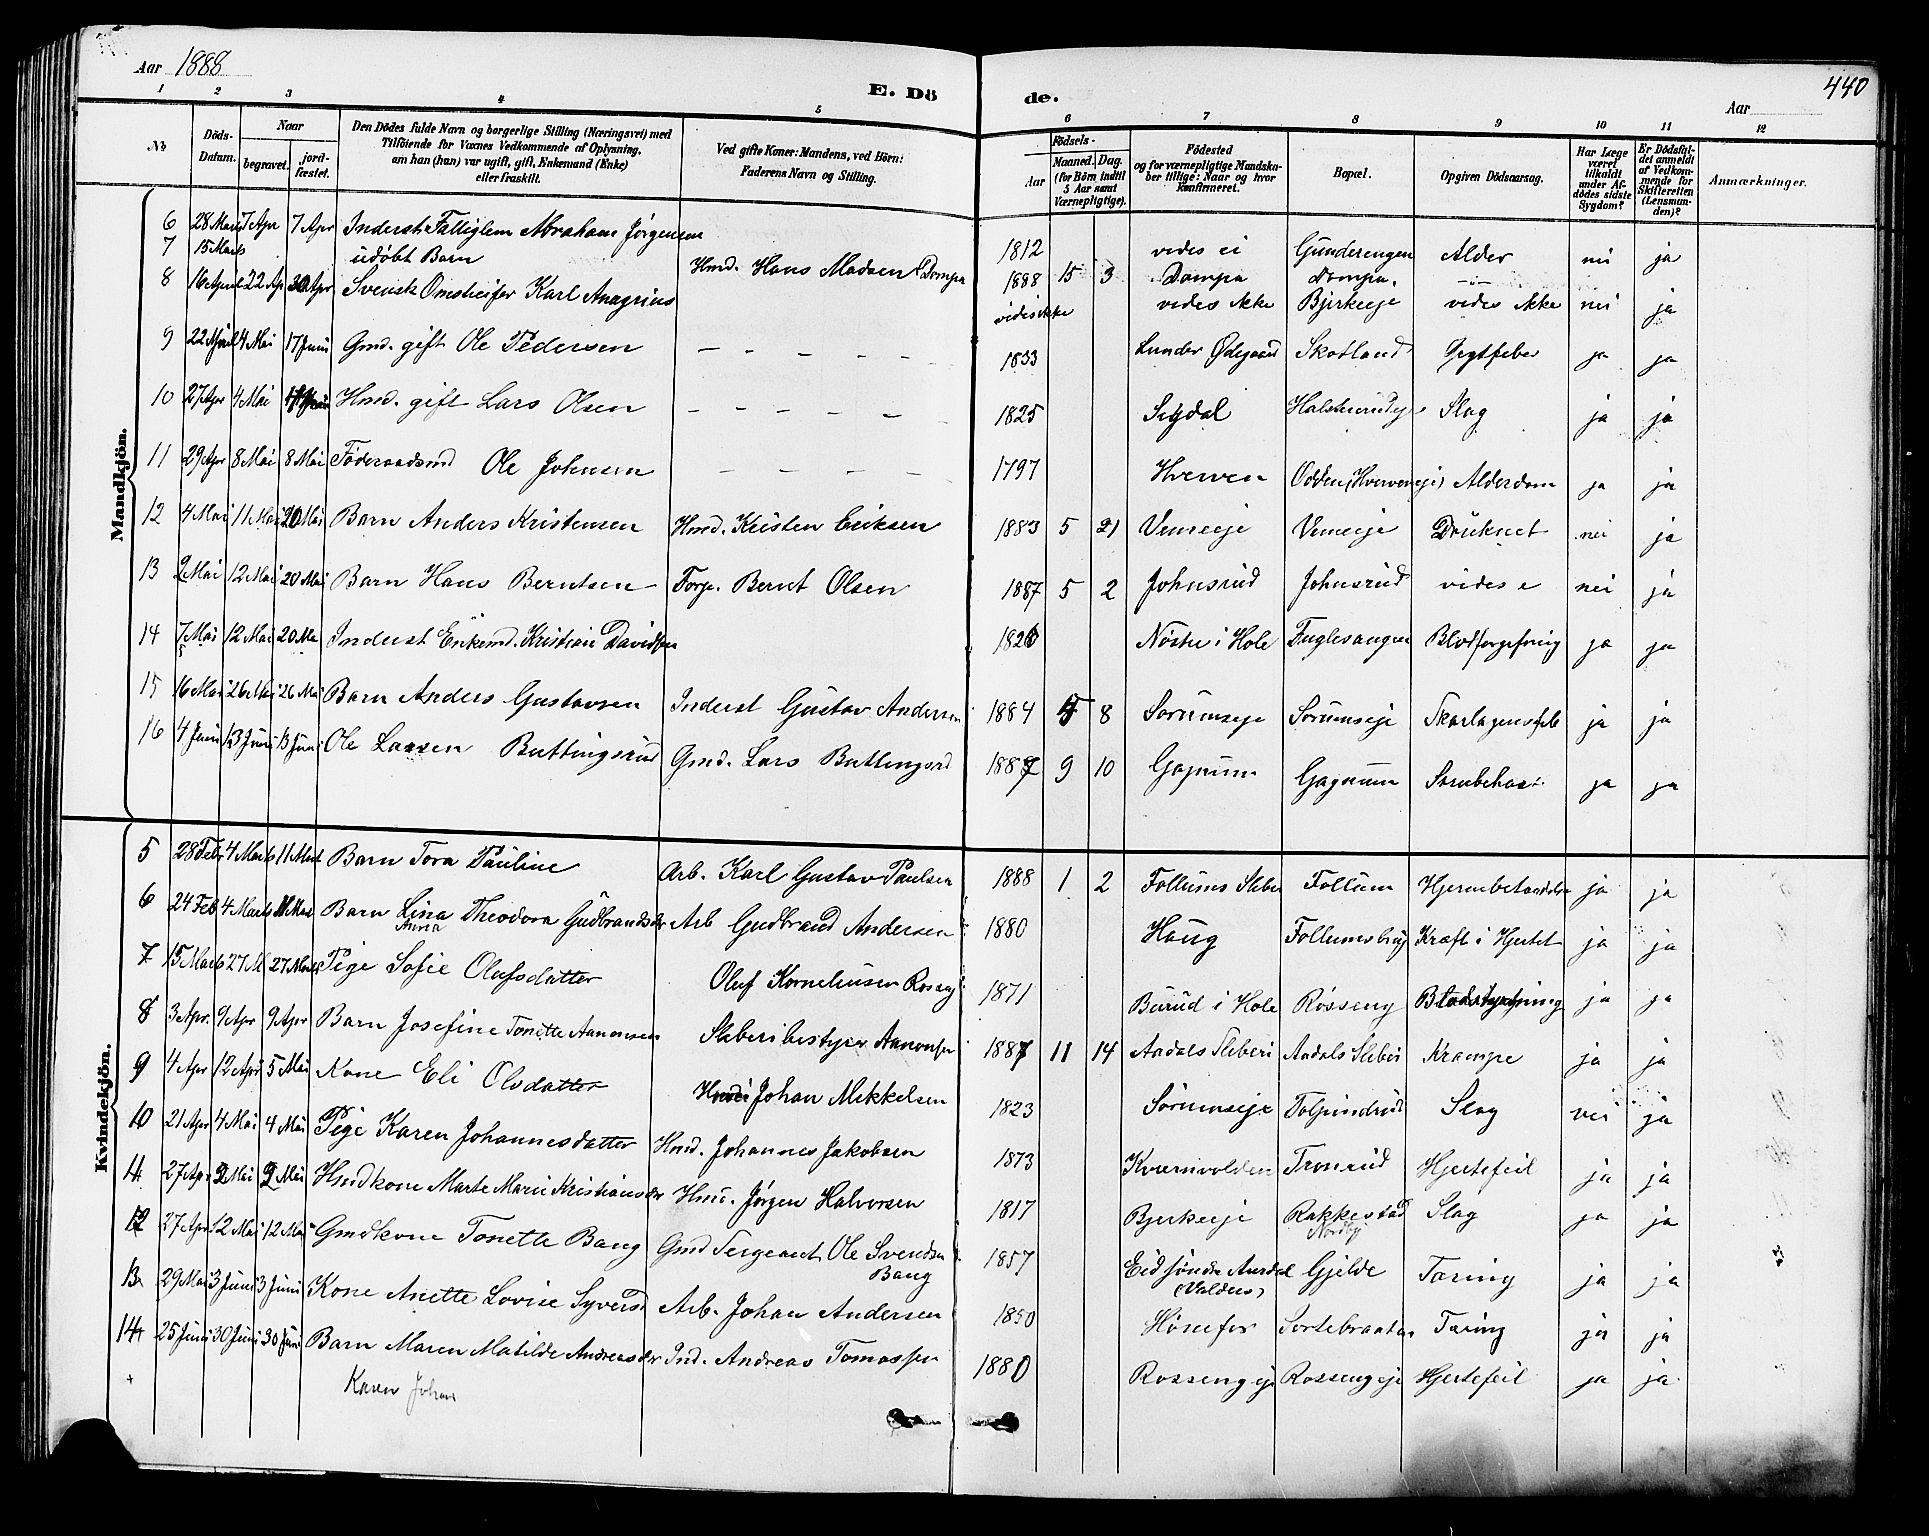 Aar 1888
E. Dö
de.
Aar
440
1 2 3 4 5 6 7 8 9 10 11 12
No
Döds-Datum.
Naar
begravet.
jord-fæstet.
Den Dödes fulde Navn og borgerlige Stilling (Næringsvei) med
Tilföiende for Voxnes Vedkommende af Oplysning,
om han (hun) var ugift, gift, Enkemand (Enke)
eller fraskilt.
Ved gifte Koner: Mandens, ved Börn:
Faderens Navn og Stilling.
Födsels-
Aar
Maaned. Dag.
(for Börn indtil
5 Aar samt
Værnepligtige).
Födested
og for værnepligtige Mandska-
ber tillige: Naar og hvor
Konfirmeret.
Bopæl.
Opgiven Dödsaarsag.
Har Læge
været
tilkaldt
under Af-
dödes sidste
Sygdom?
Er Dödsfal-
det anmeldt
af Vedkom-
mende for
Skifteretten
(Lensman-
den)?
Anmærkninger.
Mandkjön.
6 28 Marts 7 Apr 7 Apr Inderst Fattiglem Abraham Jørgensen 1812 vides ei Gunderengen Alder nei ja
7 15 Marts udøbt Barn Hmd. Hans Madsen Dompa 1888 15 3 Dompa Dompa. — " —
8 16 April 22 Ap 30 Apr Svensk Omstreifer Karl Anagrius vides ikke vides ikke Bjerkeeje vides ikke nei ja
9 22 April 4 Mai 17 Juni Gmd. gift Ole Pedersen — — — — — — 1833 Lunder Ødegaard Skotland Gigtfeber ja ja
10 27 Apr 4 Mai Hmd. gift Lars Olsen — — — — — 1825 Sigdal Slag ja ja
11 29 Apr 8 Mai 8 Mai Föderaadsmd Ole Johnsen — — — — — 1797 Hverven Odden (Hverveneje) Alderdom ja ja
12 4 Mai 11 Mai 20 Mai Barn Anders Kristensen Hmd. Kristen Eriksen 1883 5 21 Vemeeje Vemeeje Druknet nei ja
13 2 Mai 12 Mai 20 Mai Barn Hans Berntsen Forp. Bernt Olsen 1887 5 2 Johnsrud Johnsrud vides e nei ja
14 7 Mai 12 Mai 20 Ma Inderst Enkemd. Kristian Davidsen 1826 Nöste i Hole Fuglesangen Blodforgiftning ja ja
15 16 Mai 26 Mai 26 Mai Barn Anders Gustavsen Inderst Gustav Andersen 1884 8 Sorumseje Sorumseje Skarlagensfeb ja ja
16 4 Juni 13 Juni 13 Juni Ole Larsen Buttingsrud Gmd. Lars Buttingsrd 1887 9 10 Gagnum Gagnum Strubehost ja ja
Kvindekjön.
5 28 Febr 4 Marts 11 Mart Barn Tora Pauline Arb. Karl Gustav Paulsen 1888 1 2 Follums Sliber Follum Hjernebetændelse ja ja
6 24 Feb 4 Marts 11 Mar Barn Lina Theodora Gudbrandsdr Arb Gudbrand Andersen 1880 Haug Follumsbrug Kræft i Hjertet ja ja
Anna
7 15 Marts 27 M 27 Marts Pige Sofie Olufsdatter Oluf Korneliusen Roseng 1871 Burud i Hole Rösseng Blodstyrtning ja ja
8 3 Apr. 9 Apr 9 Apr Barn Josefine Tonette Aanonsen Sliberibestyrer Aanonsen 1887 11 14 Aadals Sliberi Aadals Sliberi Krampe ja ja
9 4 Apr 12 Apr 5 Mai Kone Eli Olsdatter Johan Mikkelsen 1823 Sørumseje Tolpinrud Slag nei ja
10 21 Apr 4 Mai 4 Mai Pige Karen Johannesdatter Hmd. Johannes Jakobsen 1873 Kvernvolden Tronrud Hjertefeil ja ja
11 27 Apr 2 Mai 2 Mai Hmdkone Marte Marie Kristiansdr Hmd. Jørgen Halvorsen 1817 Bjerkeeje Rakkestad Slag ja ja
Nordby
12 27 Apr 12 Mai 12 Mai Gmdkone Tonette Bang Gmd Sergeant Ole Svendsen 1857 Eid søndre Aurdal Gjelde Tæring ja ja
Bang (Valders)
13 29 Mai 3 Juni 3 Juni Kone Anette Lovise Syversd Arb. Johan Andersen 1850 Hønefos Sortebraaten Tæring ja ja
14 25 Juni 30 Juni 30 Juni Barn Maren Matilde Andreasdr Ind. Andreas Tomassen 1880 Rossengeje Rossengeje Hjertefeil ja ja
Karen Johan